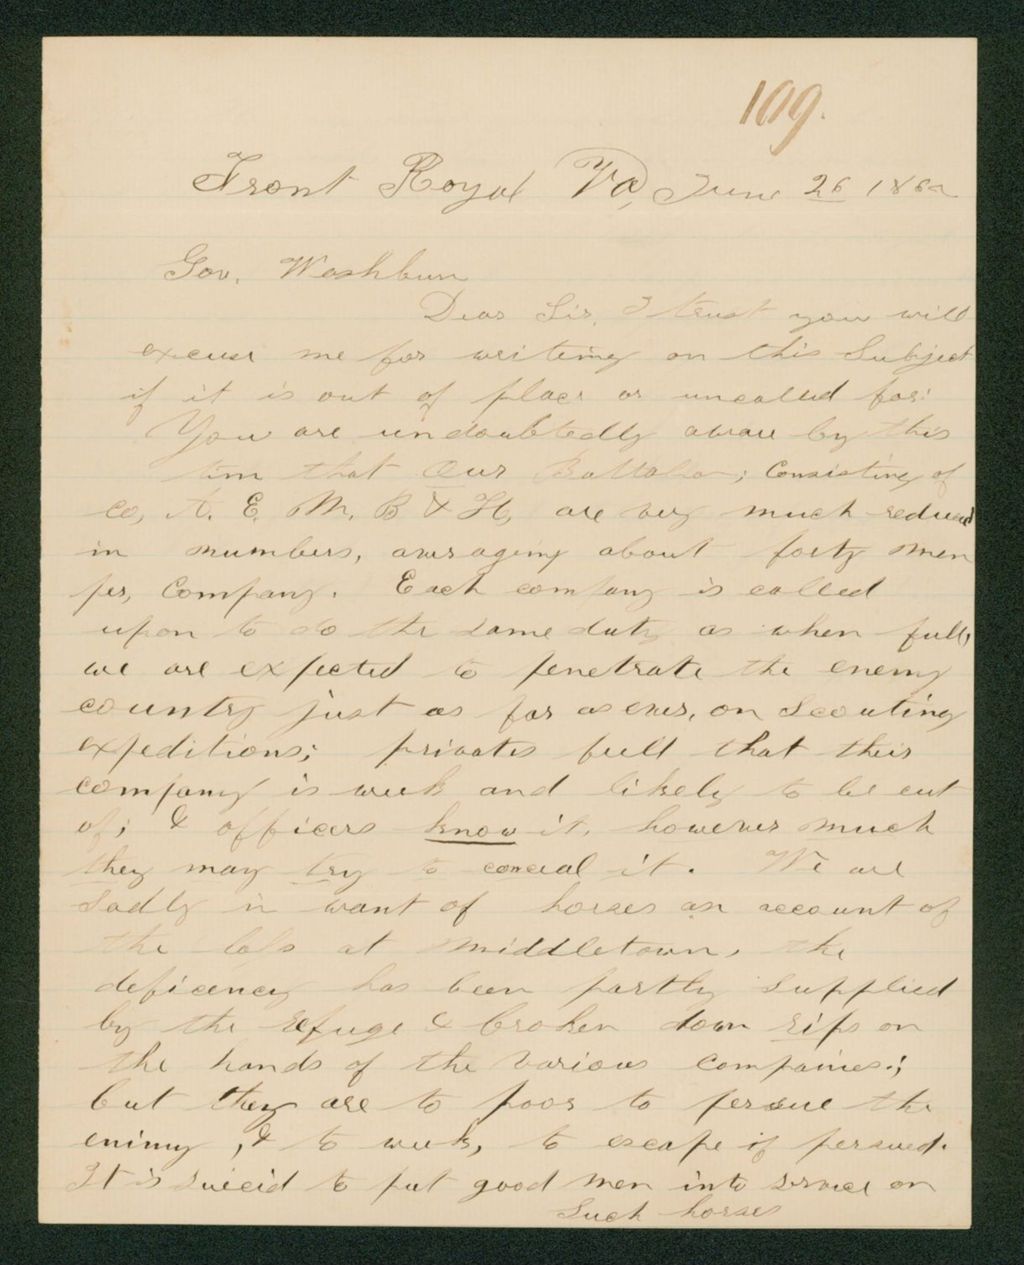 109.
Front Royal Va, June 26 1862
Gov. Washburn
Dear Sir, I trust you will
excuse me for writing on this Subject
if it is out of place or uncalled for:
You are undoubtedly aware by this
tim that Our Battalion; Consisting of
co, A. E. M. B & H, are very much reduced
in numbers, averaging about forty men
per, Company. Each company is called
upon to do the same duty as when full,
we are expected to penetrate the enemy
country just as far as ever, on Scouting
expeditions; privates feell that their
company is weak and likely to be cut
of; & officers know it, however much
they may try to conceal it. We are
Sadly in want of horses on account of
the loss at Middletown, the
deficency has been partly Supplied
by the refuge & broken down rips on
the hands of the various companies;
but they are to poor to persue the
enimy, & to weak, to escape if persued.
It is suicid to put good men into service on
Such horses